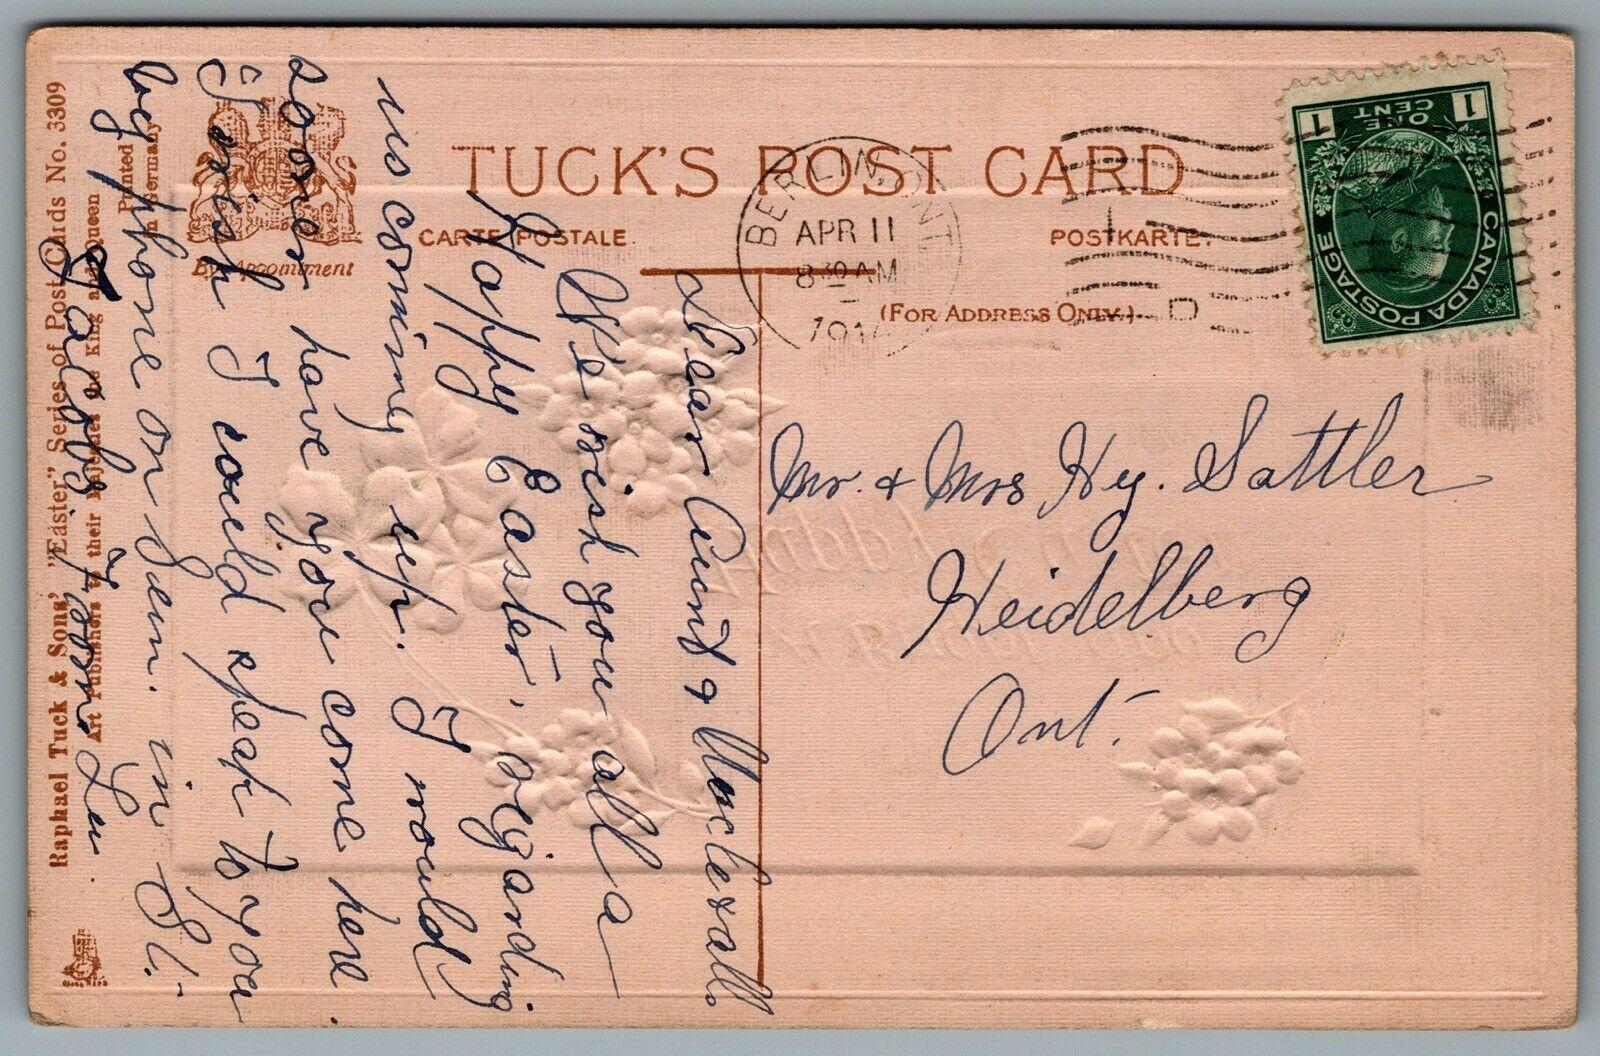 TUCK'S POST CARD
CARTE POSTALE
POSTKARTE.
(FOR ADDRESS ONLY.)
By Appointment
BERLIN, ONT.
APR 11
8 30 AM
1914
D
CANADA POSTAGE
1 ONE CENT 1
Mr. & Mrs Hy. Sattler
Heidelberg
Ont.
Dear Aunt & Uncle & all.
We wish you all a
Happy Easter, regarding
us coming up. I would
sooner have you come here.
I wish I could speak to you
by phone on Sun. in St.
Jacobs from Lu.
Raphael Tuck & Sons' "Easter" Series of Post Cards No. 3309
Art Publishers to their Majesties the King and Queen
Printed in Germany